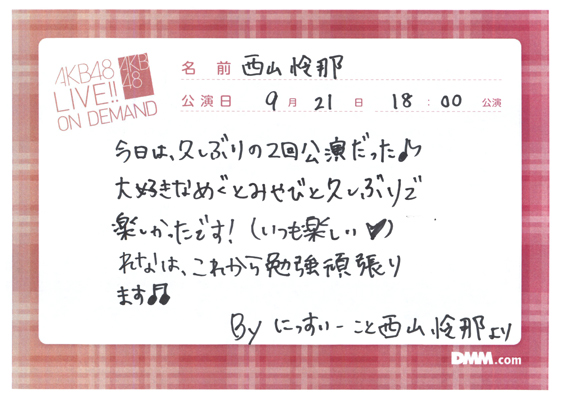 AKB48
LIVE!!
ON DEMAND
AKB
48
名 前 西山怜那
公演日 9月21日 18:00 公演
今日は、久しぶりの2回公演だった♪
大好きなめぐとみやびと久しぶりで
楽しかったです!(いつも楽しい♥)
れなは、これから勉強頑張り
ます♫
By にっすぃーこと西山怜那より
DMM.com